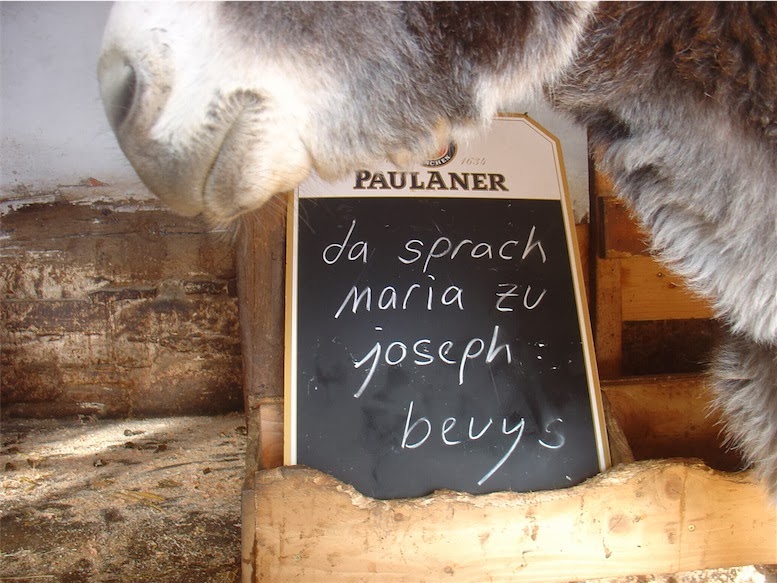 1634
PAULANER
da sprach
maria zu
joseph:
bevys